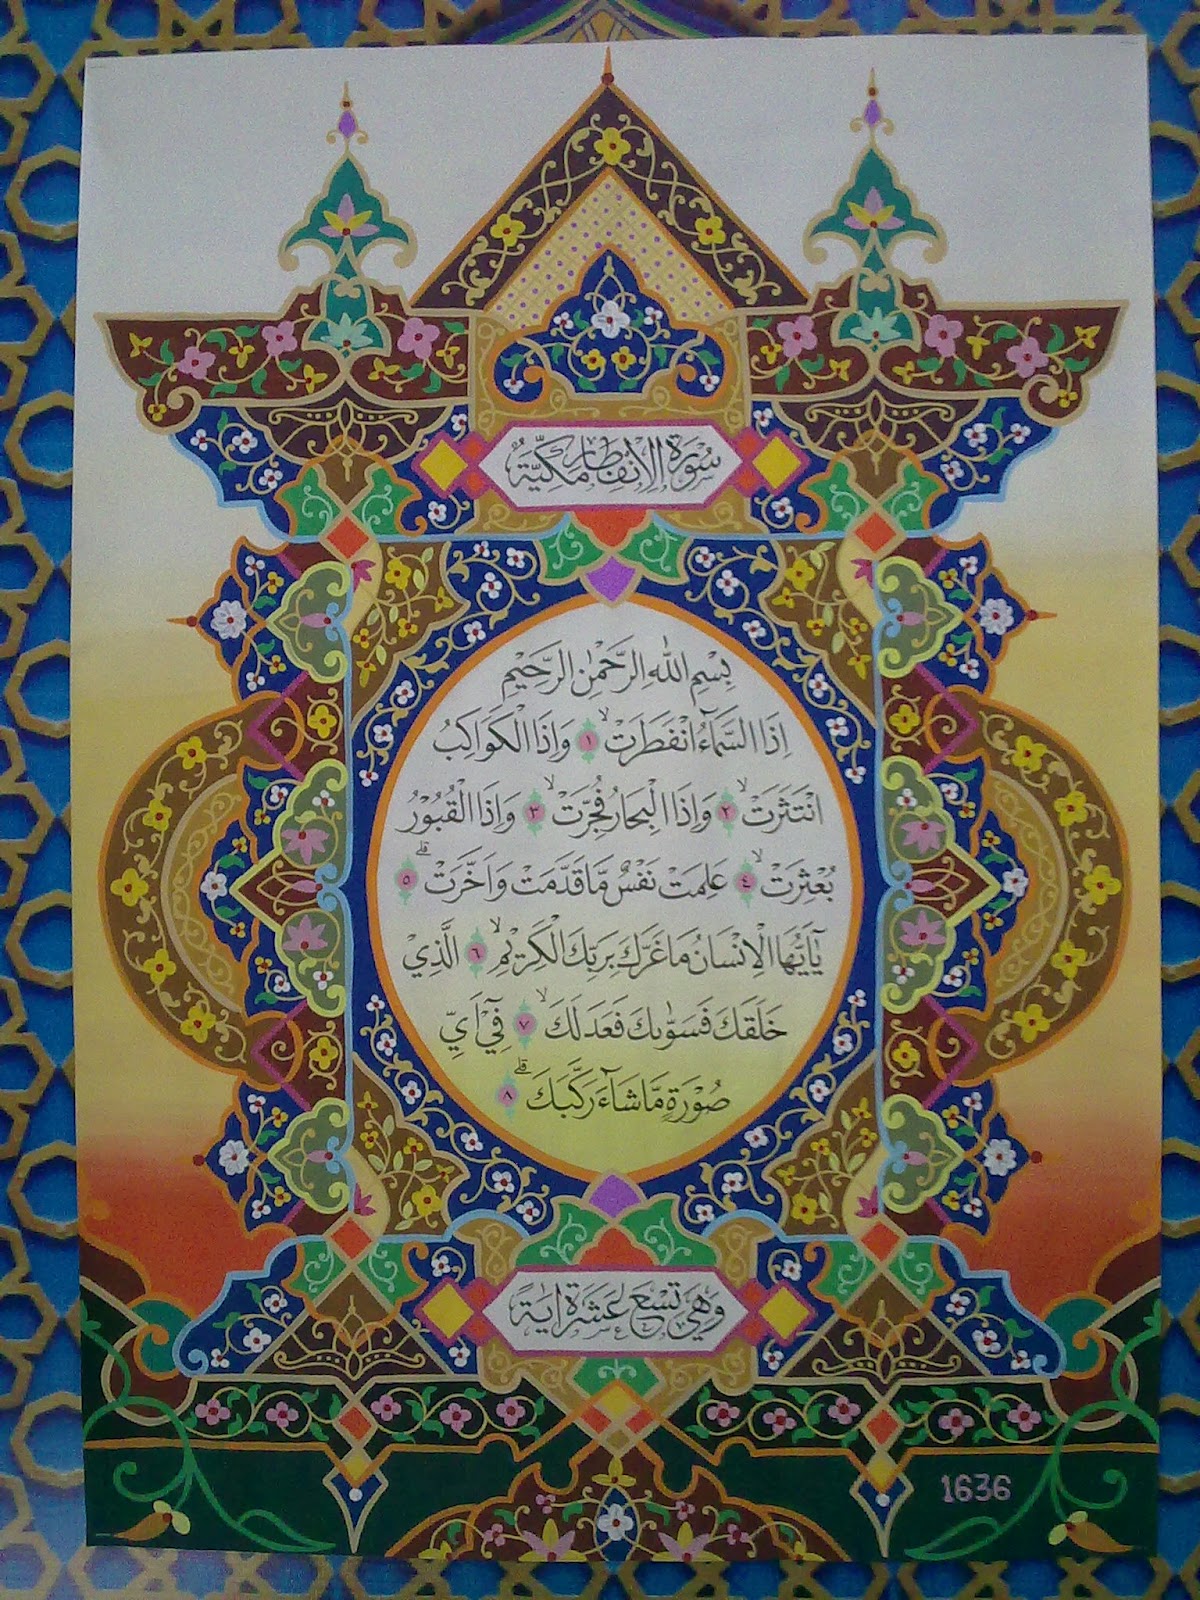 سُوْرَةُ الْاِنْفِطَارِ مَكِّيَّةٌ
بِسْمِ اللّٰهِ الرَّحْمٰنِ الرَّحِيْمِ
اِذَا السَّمَاۤءُ انْفَطَرَتْۙ ١ وَاِذَا الْكَوَاكِبُ
انْتَثَرَتْۙ ٢ وَاِذَا الْبِحَارُ فُجِّرَتْۙ ٣ وَاِذَا الْقُبُوْرُ
بُعْثِرَتْۙ ٤ عَلِمَتْ نَفْسٌ مَّا قَدَّمَتْ وَاَخَّرَتْۗ ٥
يٰٓاَيُّهَا الْاِنْسَانُ مَا غَرَّكَ بِرَبِّكَ الْكَرِيْمِۙ ٦ الَّذِيْ
خَلَقَكَ فَسَوّٰىكَ فَعَدَلَكَۙ ٧ فِيْٓ اَيِّ
صُوْرَةٍ مَّا شَاۤءَ رَكَّبَكَۗ ٨
وَهِيَ تِسْعَ عَشَرَةَ اٰيَةً
1636